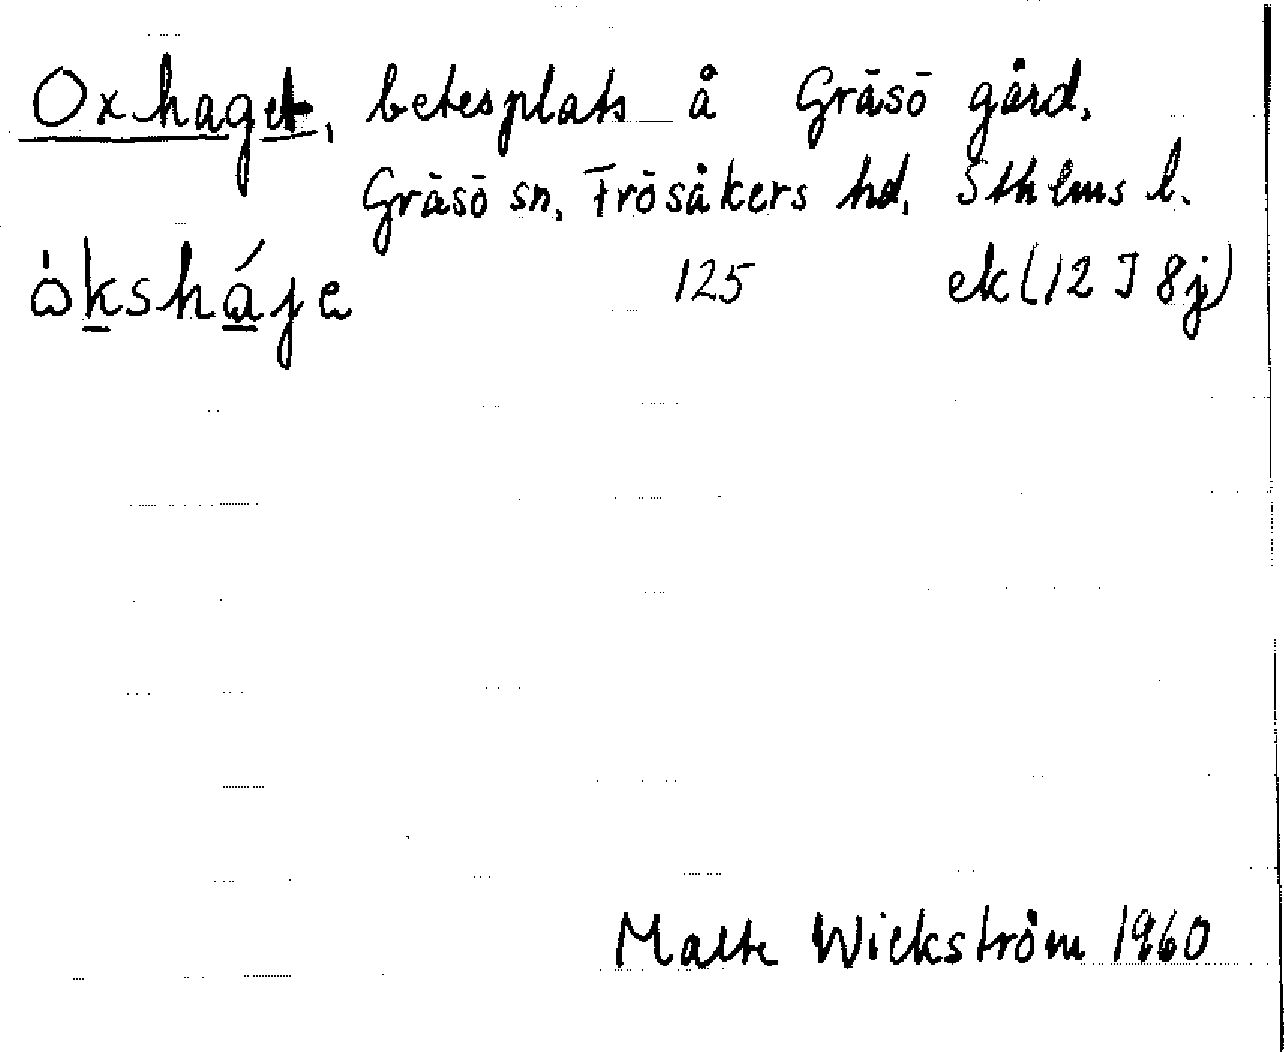 Oxhaget, betesplats å Gräsö gård,
Gräsö sn, Frösåkers hd, Sthlms l.
125 ek (12 I 8j)
Malte Wickström 1960